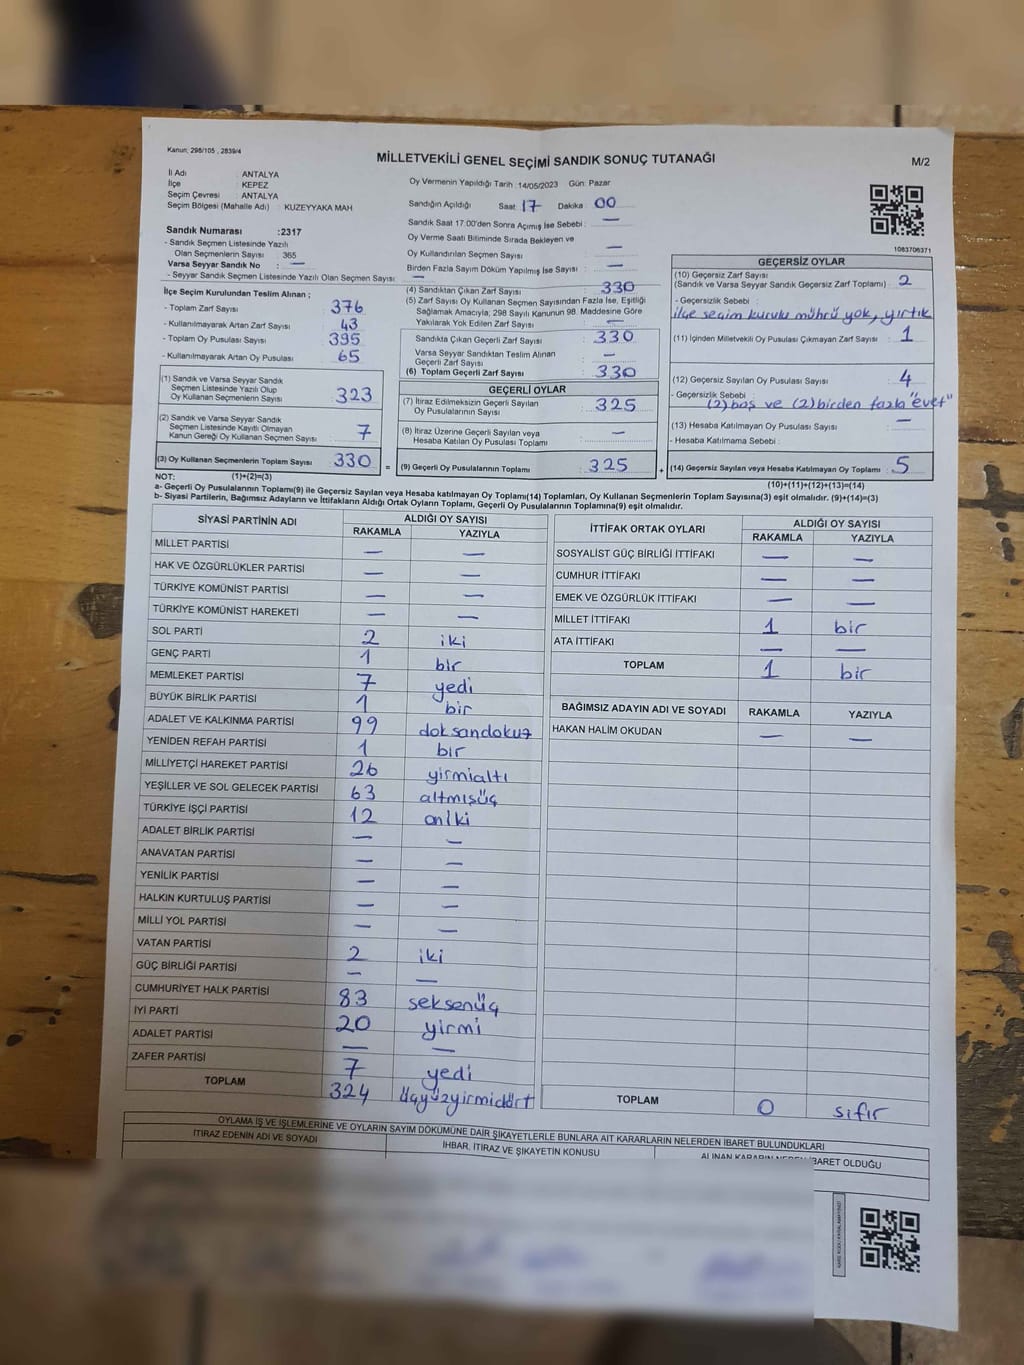 Kanun, 298/105 , 2839/4
MİLLETVEKİLİ GENEL SEÇİMİ SANDIK SONUÇ TUTANAĞI
M/2
İl Adı : ANTALYA
İlçe : KEPEZ
Seçim Çevresi : ANTALYA
Seçim Bölgesi (Mahalle Adı) : KUZEYYAKA MAH
Sandık Numarası :2317
- Sandık Seçmen Listesinde Yazılı
Olan Seçmenlerin Sayısı : 365
Varsa Seyyar Sandık No : —
- Seyyar Sandık Seçmen Listesinde Yazılı Olan Seçmen Sayısı : —
Oy Vermenin Yapıldığı Tarih :14/05/2023 Gün: Pazar
Sandığın Açıldığı Saat: 17 Dakika : 00
Sandık Saat 17:00'den Sonra Açımış İse Sebebi : —
Oy Verme Saati Bitiminde Sırada Bekleyen ve
Oy Kullandırılan Seçmen Sayısı : —
Birden Fazla Sayım Döküm Yapılmış İse Sayısı : —
1083706371
İlçe Seçim Kurulundan Teslim Alınan ;
- Toplam Zarf Sayısı : 376
- Kullanılmayarak Artan Zarf Sayısı : 43
- Toplam Oy Pusulası Sayısı : 395
- Kullanılmayarak Artan Oy Pusulası : 65
(1) Sandık ve Varsa Seyyar Sandık
Seçmen Listesinde Yazılı Olup
Oy Kullanan Seçmenlerin Sayısı : 323
(2) Sandık ve Varsa Seyyar Sandık
Seçmen Listesinde Kayıtlı Olmayan
Kanun Gereği Oy Kullanan Seçmen Sayısı : 7
(3) Oy Kullanan Seçmenlerin Toplam Sayısı : 330 =
(4) Sandıktan Çıkan Zarf Sayısı : 330
(5) Zarf Sayısı Oy Kullanan Seçmen Sayısından Fazla İse, Eşitliği
Sağlamak Amacıyla, 298 Sayılı Kanunun 98. Maddesine Göre
Yakılarak Yok Edilen Zarf Sayısı : —
Sandıkta Çıkan Geçerli Zarf Sayısı : 330
Varsa Seyyar Sandıktan Teslim Alınan
Geçerli Zarf Sayısı : —
(6) Toplam Geçerli Zarf Sayısı : 330
GEÇERLİ OYLAR
(7) İtiraz Edilmeksizin Geçerli Sayılan
Oy Pusulalarının Sayısı : 325
(8) İtiraz Üzerine Geçerli Sayılan veya
Hesaba Katılan Oy Pusulası Toplamı : —
(9) Geçerli Oy Pusulalarının Toplamı : 325 +
GEÇERSİZ OYLAR
(10) Geçersiz Zarf Sayısı : 2
(Sandık ve Varsa Seyyar Sandık Geçersiz Zarf Toplamı)
- Geçersizlik Sebebi :
ilçe seçim kurulu mührü yok, yırtık
(11) İçinden Milletvekili Oy Pusulası Çıkmayan Zarf Sayısı : 1
(12) Geçersiz Sayılan Oy Pusulası Sayısı : 4
- Geçersizlik Sebebi :
(2) boş ve (2) birden fazla "evet"
(13) Hesaba Katılmayan Oy Pusulası Sayısı : —
- Hesaba Katılmama Sebebi :
(14) Geçersiz Sayılan veya Hesaba Katılmayan Oy Toplamı : 5
NOT: (1)+(2)=(3)
(10)+(11)+(12)+(13)=(14)
a- Geçerli Oy Pusulasının Toplamı(9) ile Geçersiz Sayılan veya Hesaba katılmayan Oy Toplamı(14) Toplamları, Oy Kullanan Seçmenlerin Toplam Sayısına(3) eşit olmalıdır. (9)+(14)=(3)
b- Siyasi Partilerin, Bağımsız Adayların ve İttifakların Aldığı Ortak Oyların Toplamı, Geçerli Oy Pusulalarının Toplamına(9) eşit olmalıdır.
SİYASİ PARTİNİN ADI ALDIĞI OY SAYISI
RAKAMLA YAZIYLA
MİLLET PARTİSİ — —
HAK VE ÖZGÜRLÜKLER PARTİSİ — —
TÜRKİYE KOMÜNİST PARTİSİ — —
TÜRKİYE KOMÜNİST HAREKETİ — —
SOL PARTİ 2 iki
GENÇ PARTİ 1 bir
MEMLEKET PARTİSİ 7 yedi
BÜYÜK BİRLİK PARTİSİ 1 bir
ADALET VE KALKINMA PARTİSİ 99 doksandokuz
YENİDEN REFAH PARTİSİ 1 bir
MİLLİYETÇİ HAREKET PARTİSİ 26 yirmialtı
YEŞİLLER VE SOL GELECEK PARTİSİ 63 altmışüç
TÜRKİYE İŞÇİ PARTİSİ 12 oniki
ADALET BİRLİK PARTİSİ — —
ANAVATAN PARTİSİ — —
YENİLİK PARTİSİ — —
HALKIN KURTULUŞ PARTİSİ — —
MİLLİ YOL PARTİSİ — —
VATAN PARTİSİ 2 iki
GÜÇ BİRLİĞİ PARTİSİ — —
CUMHURİYET HALK PARTİSİ 83 seksenüç
İYİ PARTİ 20 yirmi
ADALET PARTİSİ — —
ZAFER PARTİSİ 7 yedi
TOPLAM 324 üçyüzyirmidört
İTTİFAK ORTAK OYLARI ALDIĞI OY SAYISI
RAKAMLA YAZIYLA
SOSYALİST GÜÇ BİRLİĞİ İTTİFAKI — —
CUMHUR İTTİFAKI — —
EMEK VE ÖZGÜRLÜK İTTİFAKI — —
MİLLET İTTİFAKI 1 bir
ATA İTTİFAKI — —
TOPLAM 1 bir
BAĞIMSIZ ADAYIN ADI VE SOYADI RAKAMLA YAZIYLA
HAKAN HALİM OKUDAN — —
TOPLAM 0 sıfır
OYLAMA İŞ VE İŞLEMLERİNE VE OYLARIN SAYIM DÖKÜMÜNE DAİR ŞİKAYETLERLE BUNLARA AİT KARARLARIN NELERDEN İBARET BULUNDUKLARI
İTİRAZ EDENİN ADI VE SOYADI
İHBAR, İTİRAZ VE ŞİKAYETİN KONUSU
ALINAN KARARIN NEDEN İBARET OLDUĞU